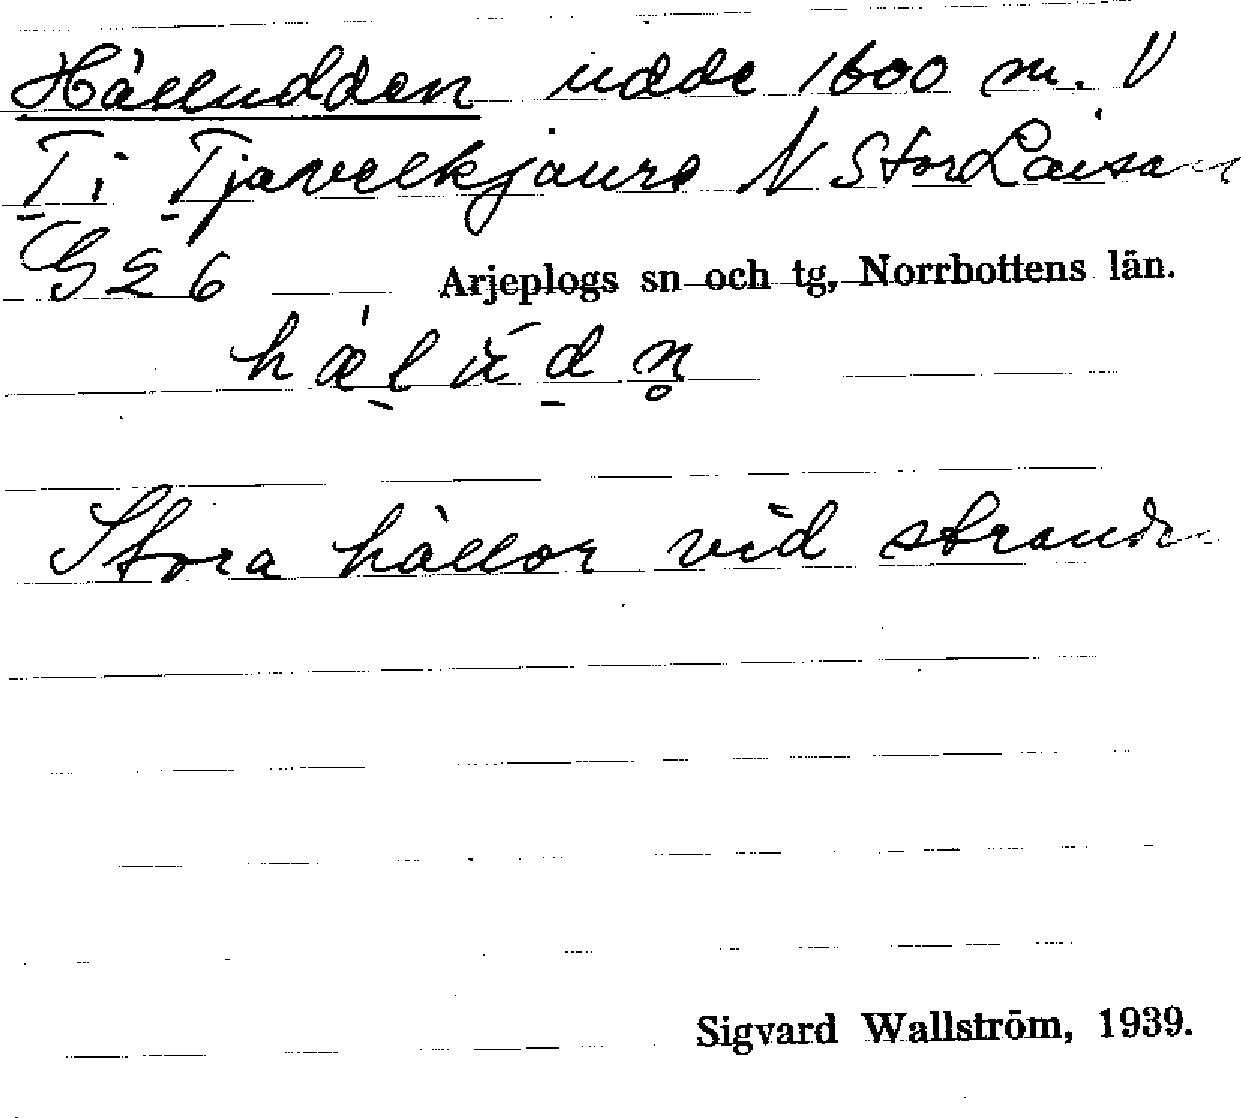 Hälludden udde 1600 m. V
T i Tjavelkjaure N StorLaisan
G 2 6 Arjeplogs sn och tg, Norrbottens län.
hæludn̥
Stora hällor vid stranden
Sigvard Wallström, 1939.